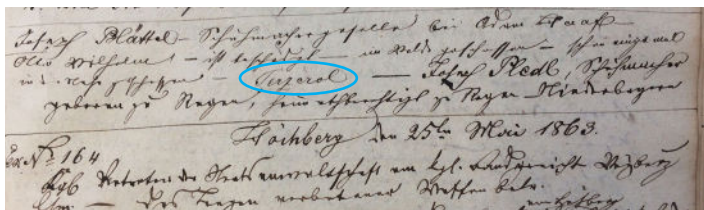 Joseph Blättel – Schuhmachergeselle bei Adam Haaf
Otto Wilhelm – ist beschuldigt – im Walde geschossen – schon einigemal
in die geschossen – Terzerol — Joseph Pledl, Schuhmacher
geboren zu Regen, heimathberechtigt zu Regen – Niederbayern
Höchberg den 25ten Mai 1863.
Nº 164
Kgl. Vertreter der Staatsanwaltschaft am kgl. Landgericht Würzburg
Das Tragen verbotener Waffen betr.